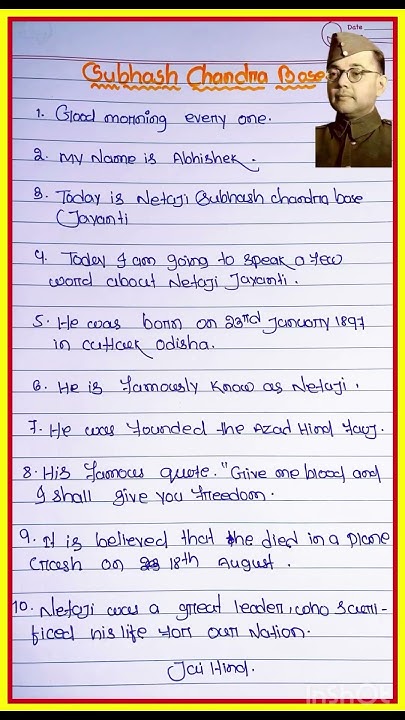 Date
Subhash Chandra Base
1. Good morning every one.
2. My Name is Abhishek.
3. Today is Netaji Subhash chandra base
Jayanti
4. Today I am going to speak a few
word about Netaji Jayanti.
5. He was born on 23rd January 1897
in cuttack odisha.
6. He is famously know as Netaji.
7. He was founded the Azad Hind fauj.
8. His famous quote. "Give me blood and
I shall give you freedom.
9. It is believed that he died in a plane
crash on 18th August.
10. Netaji was a great leader, who sacri-
ficed his life for our Nation.
Jai Hind.
InShOt